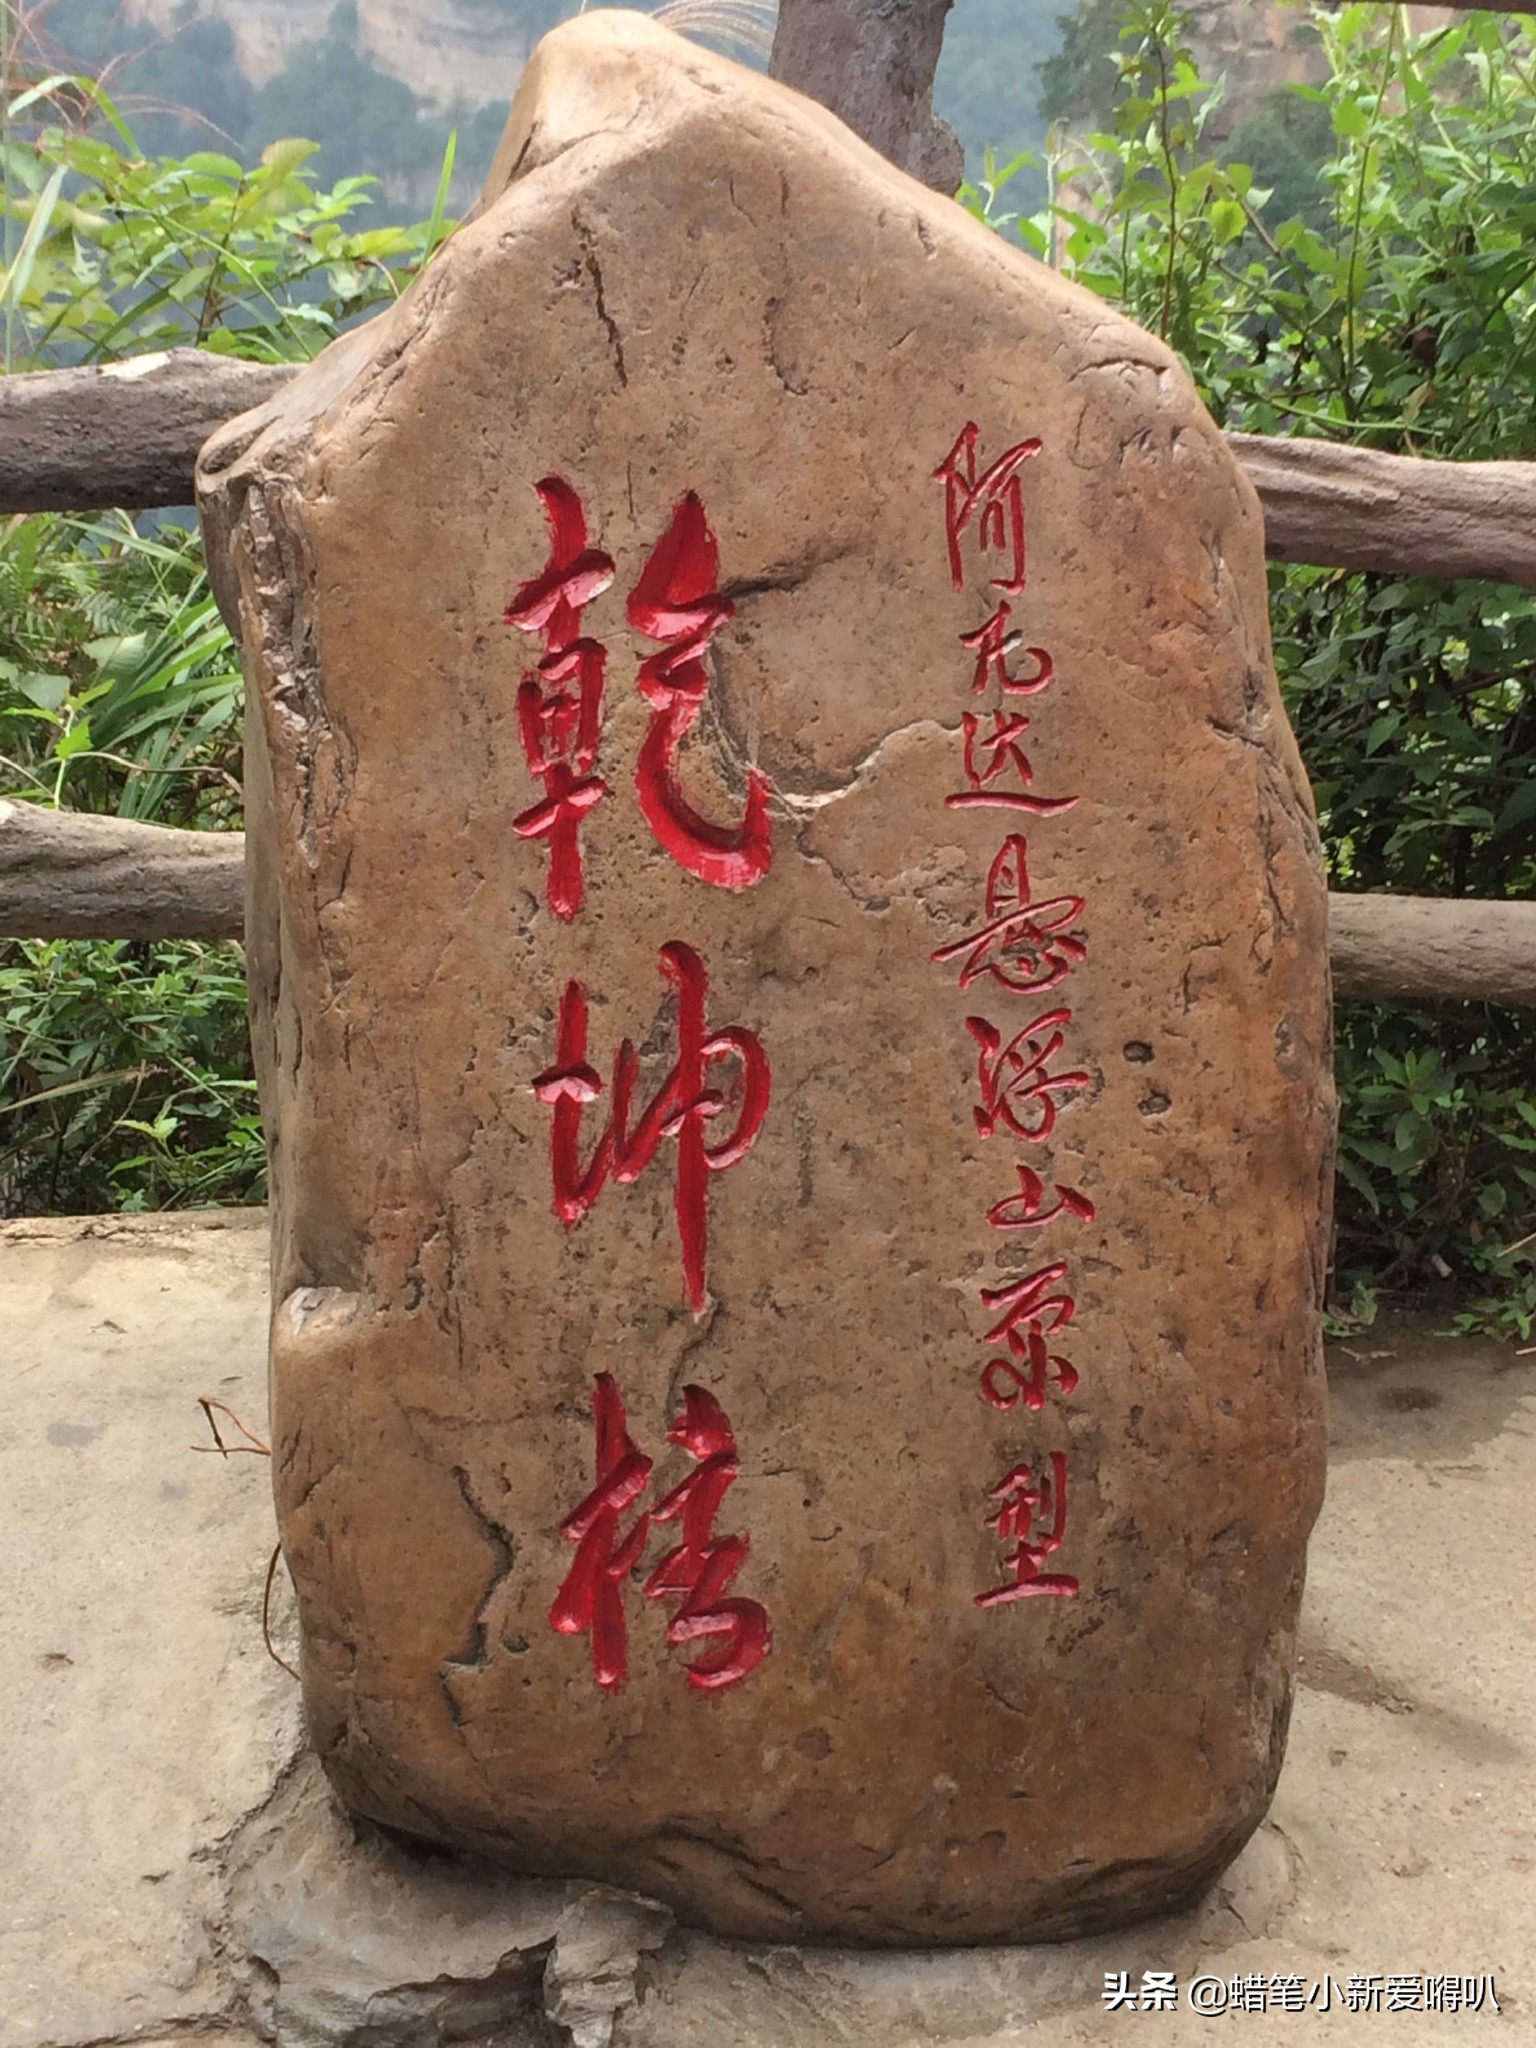 阿凡达悬浮山原型
乾坤橋
头条 @蜡笔小新爱嘚叭